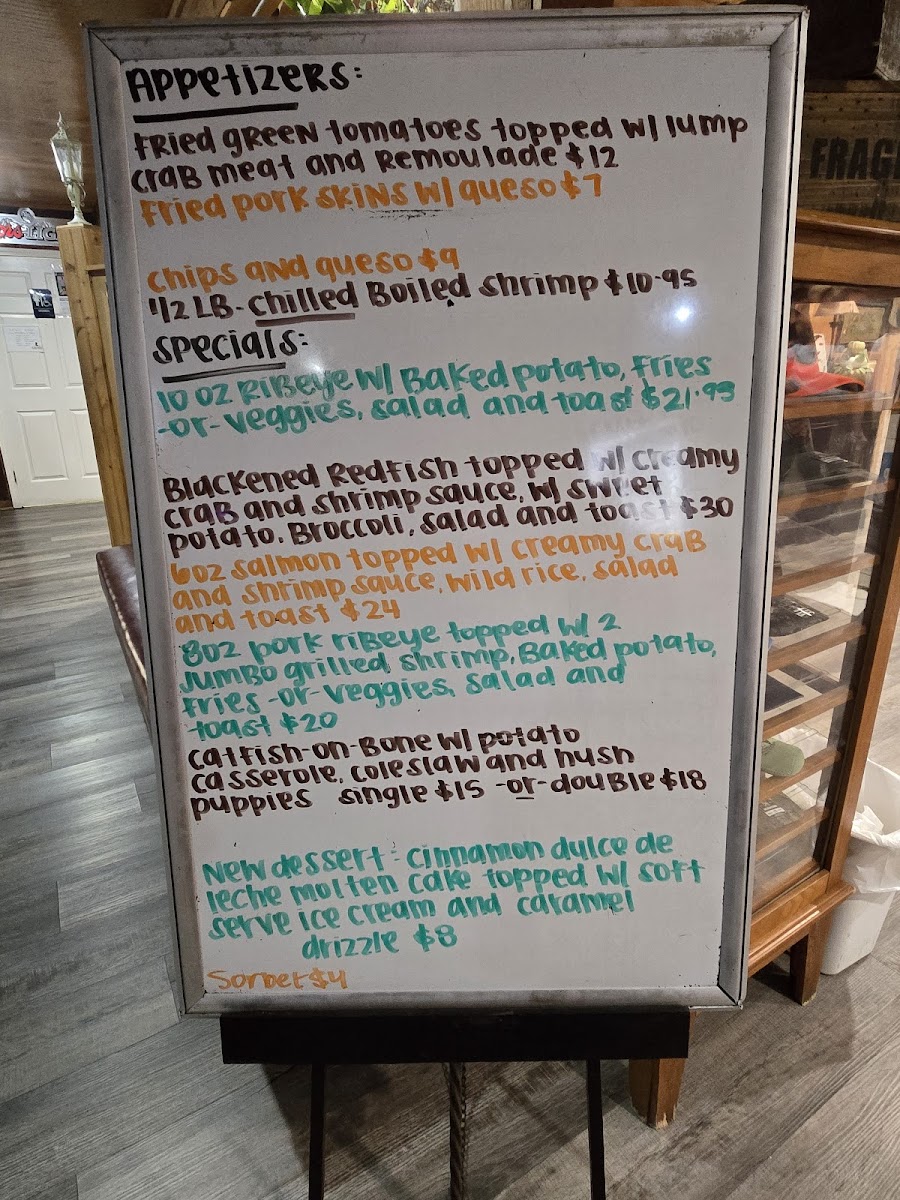 Appetizers:
Fried green tomatoes topped w/ lump
crab meat and remoulade $12
Fried pork skins w/ queso $7
Chips and queso $9
1/2 LB. chilled Boiled shrimp $10.95
Specials:
10 oz Ribeye w/ Baked potato, fries
-or- veggies, salad and toast $21.93
Blackened Redfish topped w/ creamy
crab and shrimp sauce, w/ sweet
potato. Broccoli, salad and toast $30
6oz salmon topped w/ creamy crab
and shrimp sauce, wild rice, salad
and toast $24
8oz pork ribeye topped w/ 2
Jumbo grilled shrimp, Baked potato,
fries -or- veggies, salad and
toast $20
Catfish-on-Bone w/ potato
casserole, coleslaw and hush
puppies single $15 -or- double $18
New dessert: cinnamon dulce de
leche molten cake topped w/ soft
serve ice cream and caramel
drizzle $8
Sorbet $4
FRAG